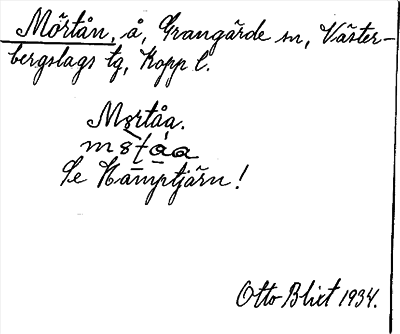 Mörtån, å, Grangärde sn, Väster-
bergslags tg, Kopp l.
Mørtåa.
Se Kämptjärn!
Otto Blixt 1934.